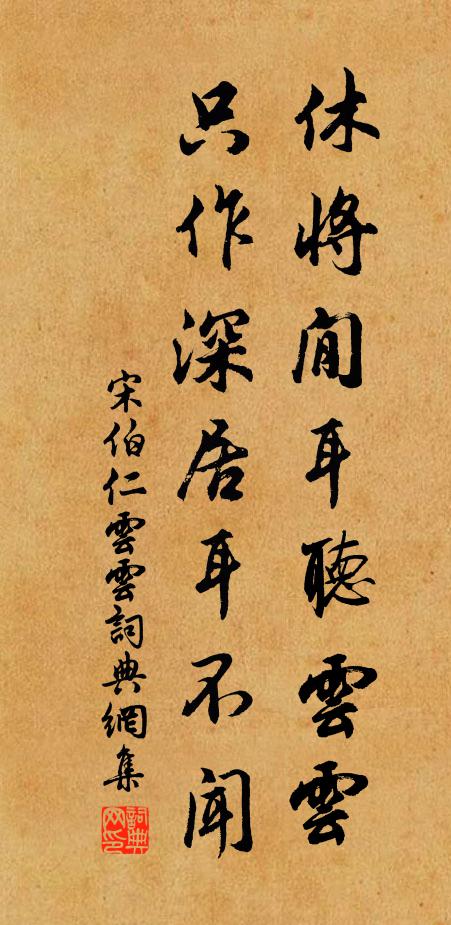 休將閒耳聽雲雲
只作深居耳不聞
宋伯仁雲雲詞典網集
詞典網印